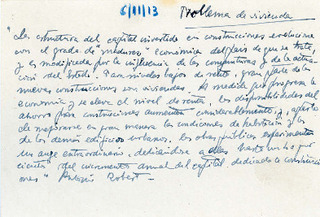 6/III/13
Problema de vivienda
"La estructura del capital invertido en construcciones evoluciona
con el grado de "madurez" económica del país de que se trate,
y es modificada por la influencia de las coyunturas y de la actua-
ción del Estado. Para niveles bajos de renta, gran parte de las
nuevas construcciones son viviendas. A medida que progresa la
economía y se eleva el nivel de renta, las disponibilidades del
ahorro para construcciones aumentan considerablemente y, aparte
de mejorarse en gran manera las condiciones de habitación y las
de los demás edificios urbanos, las obras públicas experimentan
un auge extraordinario, dedicándose a ellas hasta un por
ciento del incremento anual del capital dedicado a construccio-
nes" Robert